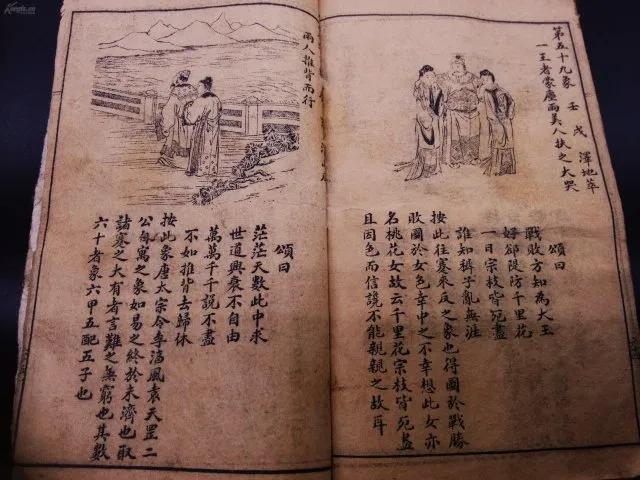 第五十九象 壬戌 澤地萃
一王者蒙塵兩美人扶之大哭
頌曰
戰敗方知為大王
好郤隄防千里花
一日宗枝皆宛盡
誰知稗子亂無涯
按此往蹇來反之象也得國於戰勝
敗國於女色幸中之不幸想此女亦
名桃花女故云千里花宗枝皆宛盡
且因色而信讒不能親親之故耳
兩人推背而行
頌曰
茫茫天數此中求
世道興衰不自由
萬萬千千說不盡
不如推背去歸休
按此象唐太宗令李淳風袁天罡二
公自寓之象如易之終於未濟也取
諸蹇之大有者言難之無窮也其數
六十者象六甲五配五子也